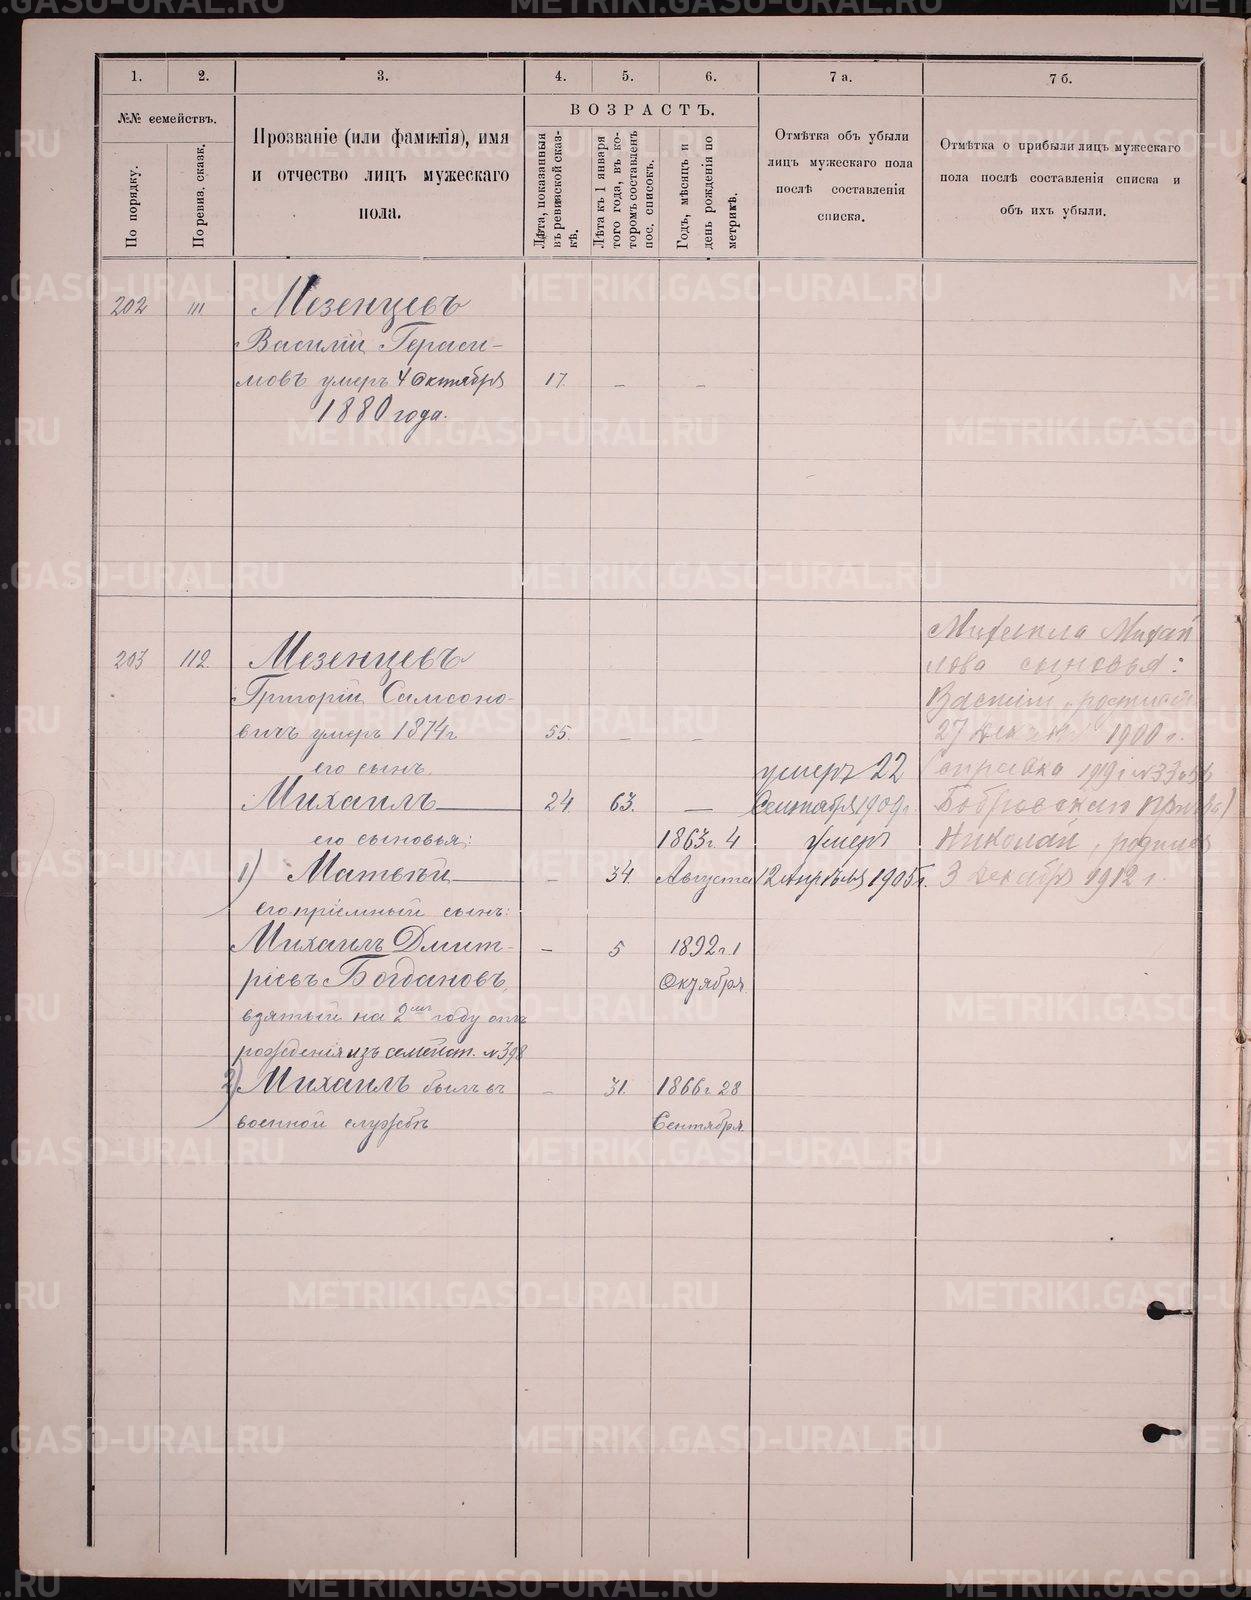 1.
2.
3.
4.
5.
6.
7 а.
7 б.
№№ семействъ.
По порядку.
По ревиз. сказк.
Прозваніе (или фамилія), имя
и отчество лицъ мужескаго
пола.
ВОЗРАСТЪ.
Лѣта, показанныя
въ ревизской сказ-
кѣ.
Лѣта къ 1 января
того года, въ ко-
торомъ составленъ
пос. списокъ.
Годъ, мѣсяцъ и
день рожденія по
метрикѣ.
Отмѣтка объ убыли
лицъ мужескаго пола
послѣ составленія
списка.
Отмѣтка о прибыли лицъ мужескаго
пола послѣ составленія списка и
объ ихъ убыли.
202 111 Мезенцевъ
Василій Гераси-
мовъ умеръ 4 Октября 17. – –
1880 года.
203 112 Мезенцевъ
Григорій Самсоно-
вичъ умеръ 1874 г 55. – –
его сынъ.
Михаилъ 24. 63. – умеръ 22
Сентября 1909 г.
его сыновья:
1) Матвѣй – 34. 1863 г. 4
Августа
умеръ
12 Апрѣля 1905 г.
его пріемный сынъ:
Михаилъ Дмит- – 5 1892 г. 1
ріевъ Богдановъ, Октября
взятый на 2 году отъ
рожденія изъ семейст. № 398
2) Михаилъ былъ въ – 31. 1866 г. 28
военной службѣ Сентября
Михаила Михай
лова сыновья:
Василій, родился
27 1900 г.
Справка 1919 г. №
Николай, родился
3 Декабря 1912 г.
METRIKI.GASO-URAL.RU